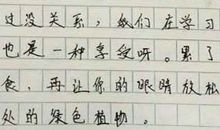 过没关系，我们在学习
也是一种享受呀。累了
食，再让你的眼睛放松
处的绿色植物。